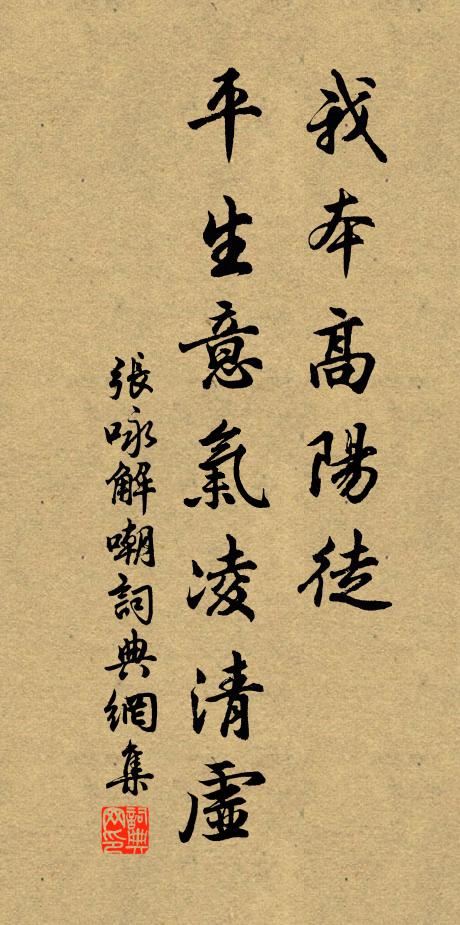 我本高陽徒
平生意氣凌清虛
張咏解嘲詞典網集
詞典网印